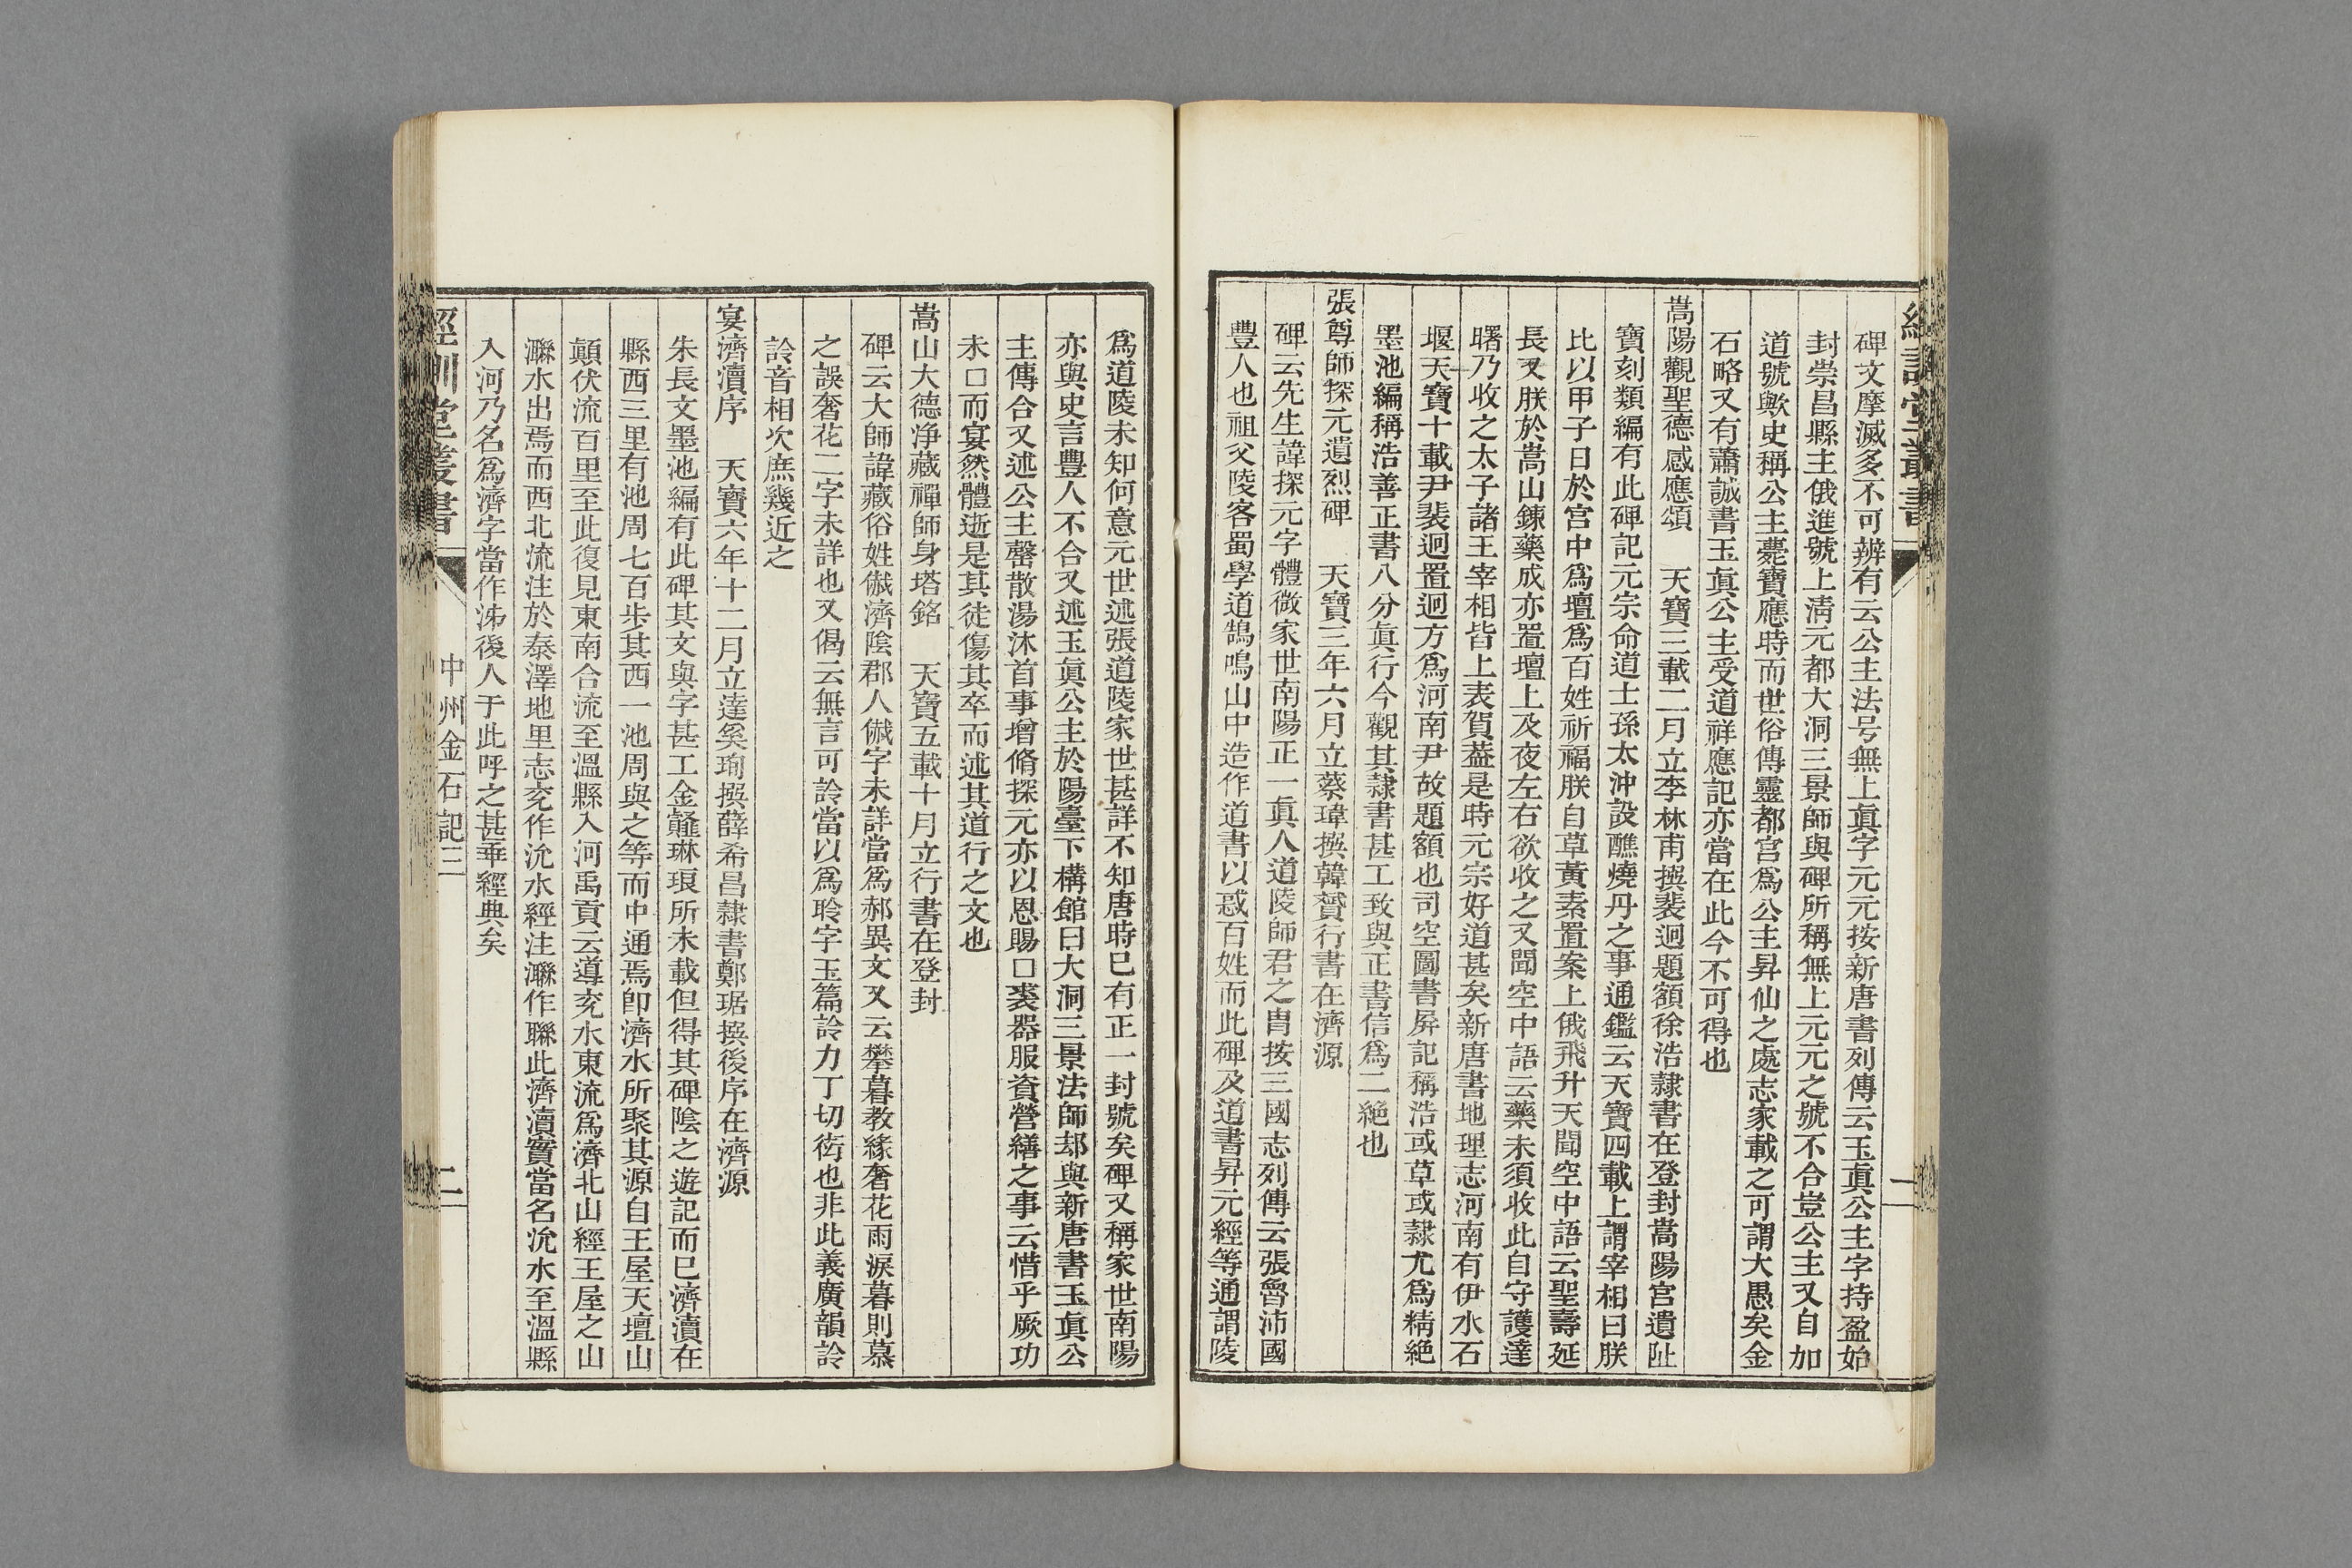 碑文摩滅多不可辨有云公主法号無上眞字元元按新唐書列傳云玉眞公主字持盈始
封崇昌縣主俄進號上淸元都大洞三景師與碑所稱無上元元之號不合豈公主又自加
道號歟史稱公主薨寶應時而世俗傳靈都宫爲公主昇仙之處志家載之可謂大愚矣金
石略又有蕭誠書玉眞公主受道祥應記亦當在此今不可得也
嵩陽觀聖德感應頌　天寶三載二月立李林甫撰裴迥題額徐浩隷書在登封嵩陽宫遺阯
寶刻類編有此碑記元宗命道士孫太沖設醮燒丹之事通鑑云天寶四載上謂宰相曰朕
比以甲子日於宫中爲壇爲百姓祈福朕自草黃素置案上俄飛升天聞空中語云聖壽延
長又朕於嵩山鍊藥成亦置壇上及夜左右欲收之又聞空中語云藥未須收此自守護達
曙乃收之太子諸王宰相皆上表賀葢是時元宗好道甚矣新唐書地理志河南有伊水石
堰天寶十載尹裴迥置迥方爲河南尹故題額也司空圖書屏記稱浩或草或隷尤爲精絶
墨池編稱浩善正書八分眞行今觀其隷書甚工致與正書信爲二絶也
張尊師探元遺烈碑　天寶三年六月立蔡瑋撰韓贇行書在濟源
碑云先生諱探元字體微家世南陽正一眞人道陵師君之胄按三國志列傳云張魯沛國
豐人也祖父陵客蜀學道鵠鳴山中造作道書以惑百姓而此碑及道書昇元經等通謂陵
爲道陵未知何意元世述張道陵家世甚詳不知唐時已有正一封號矣碑又稱家世南陽
亦與史言豐人不合又述玉眞公主於陽臺下構館曰大洞三景法師却與新唐書玉眞公
主傳合又述公主罄散湯沐首事增脩探元亦以恩賜□裘器服資營繕之事云惜乎厥功
未□而宴然體逝是其徒傷其卒而述其道行之文也
嵩山大德净藏禪師身塔銘　天寶五載十月立行書在登封
碑云大師諱藏俗姓㑶濟陰郡人㑶字未詳當爲郝異文又云攀暮教緣奢花雨淚暮則慕
之誤奢花二字未詳也又偈云無言可詅當以爲聆字玉篇詅力丁切衒也非此義廣韻詅
詅音相次庶幾近之
宴濟瀆序　天寶六年十二月立達奚珣撰薛希昌隷書鄭琚撰後序在濟源
朱長文墨池編有此碑其文與字甚工金薤琳琅所未載但得其碑陰之遊記而已濟瀆在
縣西三里有池周七百步其西一池周與之等而中通焉卽濟水所聚其源自王屋天壇山
顛伏流百里至此復見東南合流至溫縣入河禹貢云導沇水東流爲濟北山經王屋之山
㶌水出焉而西北流注於泰澤地里志兖作沇水經注㶌作聯此濟瀆實當名沇水至溫縣
入河乃名爲濟字當作泲後人于此呼之甚乖經典矣
經訓堂叢書
中州金石記三
二